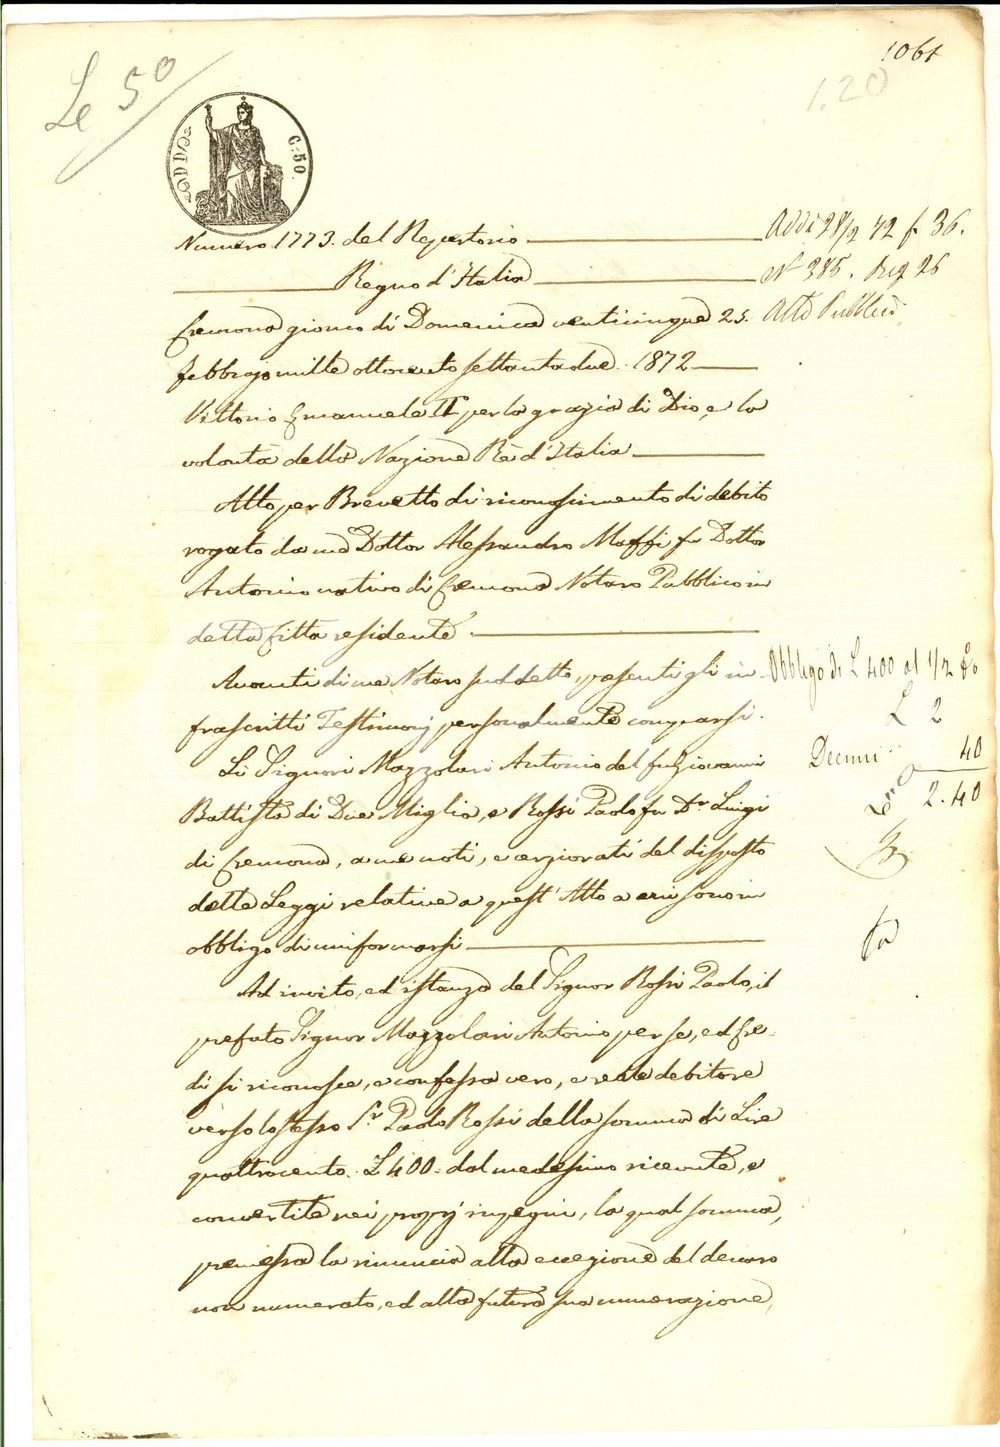 1061
Le 50
1.20
C. 50
Numero 1773. del Repertorio
Addì 28/2 72 f. 36.
Regno d'Italia
N° 385. Reg 26
Cremona giorno di Domenica venticinque 25.
Atti Pubblici
febbrajo mille ottocento settantadue. 1872
Vittorio Emanuele II per la grazia di Dio, e la
volontà della Nazione Re d'Italia
Atto per Brevetto di riconoscimento di debito
rogato da me Dottor Alessandro Maffi fu Dottor
Antonio nativo di Cremona Notaro Pubblico in
detta Città residente.
Avanti di me Notaro suddetto, presenti gli in-
Obbligo di L 400 al 1/2 %
frascritti Testimonj personalmente comparsi.
L 2
Li Signori Mazzolari Antonio del fu Giovanni
Decimi 40
Battista di Due Miglia, e Rossi Paolo fu Dr Luigi
2.40
di Cremona, a me noti, e cerziorati del disposto
delle Leggi relative a quest'Atto a cui sono in
obbligo di uniformarsi
Ad invito, ed istanza del Signor Rossi Paolo, il
prefato Signor Mazzolari Antonio per se, ed Ere-
di si riconosce, e confessa vero, e reale debitore
verso lo stesso Sr Paolo Rossi della somma di Lire
quattrocento. L 400. dal medesimo ricevute, e
convertite nei proprj bisogni, la qual somma,
premessa la rinuncia alla eccezione del denaro
non numerato, ed alla futura sua numerazione,